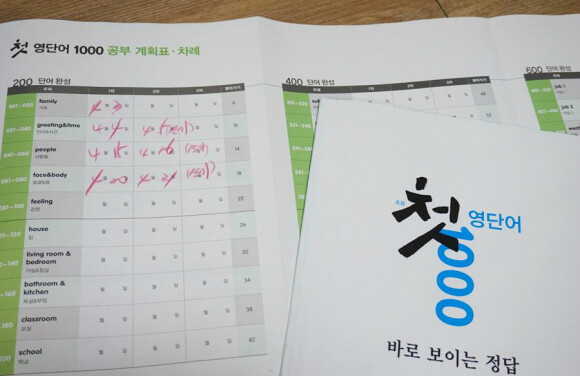 첫 영단어 1000 공부 계획표 · 차례
200 단어 완성
주제 1차 2차 3차 페이지
001~020 family 가족 4월 3일 월 일 월 일 6
021~040 greeting&time 인사&시간 10
041~060 people 사람들 4월 15 4월 16 14
061~080 face&body 얼굴&몸 4월 20 4월 21 18
081~100 feeling 감정 월 일 월 일 월 일 22
house 집 월 일 월 일 월 일 26
~140 living room & bedroom 거실&침실 월 일 월 일 월 일 30
~160 bathroom & kitchen 욕실&부엌 월 일 월 일 월 일 34
~180 classroom 교실 월 일 월 일 월 일 38
200 school 학교 월 일 월 일 월 일 42
400 단어 완성
주제 1차 2차 3차 페이지
600 단어 완성
주제
job 1
job 2
초등
첫 영단어
1000
바로 보이는 정답